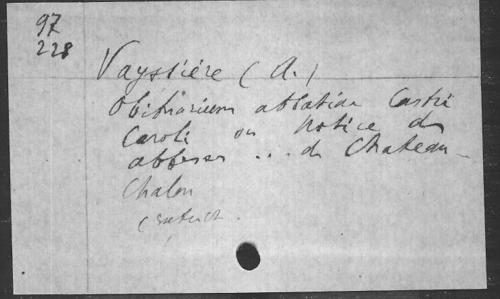 97
228
Vayssière (A.)
Obituarium abbatiae Castri
Caroli ou notice des
abbesses ... de Chateau-
Chalon